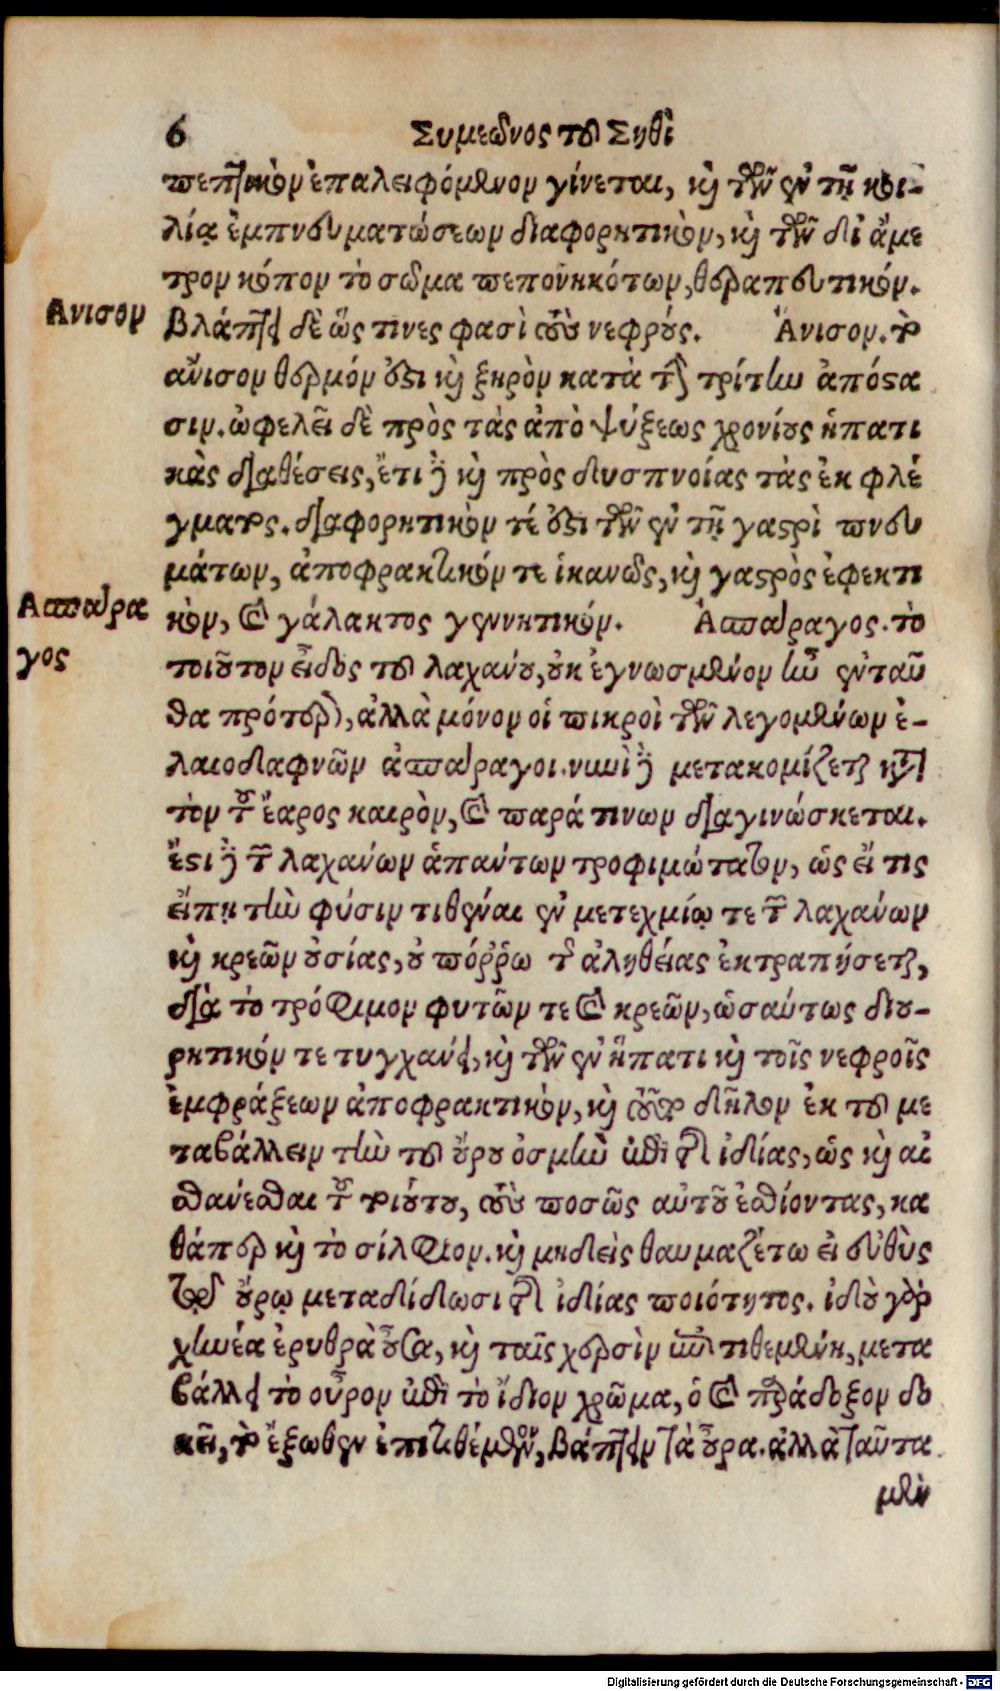 6 Συμεῶνος τοῦ Σηθὶ
πεπτικὸν ἐπαλειφόμενον γίνεται, καὶ τῶν ἐν τῇ κοι-
λίᾳ ἐμπνευματώσεων διαφορητικὸν, καὶ τῶν δι ἄμε
τρον κόπον τὸ σῶμα πεπονηκότων, θεραπευτικόν.
Ανισον
βλάπτει δὲ ὥς τινες φασὶ τοὺς νεφρούς. Ἄνισον. τὸ
ἄνισον θερμόν ἐστι καὶ ξηρὸν κατὰ τὴν τρίτην ἀπόστα
σιν. ὠφελεῖ δὲ πρὸς τὰς ἀπὸ ψύξεως χρονίους ἡπατι
κὰς διαθέσεις, ἔτι δὲ καὶ πρὸς δυσπνοίας τὰς ἐκ φλέ
γματος. διαφορητικὸν τέ ἐστι τῶν ἐν τῇ γαστρὶ πνευ
μάτων, ἀποφρακτικόν τε ἱκανῶς, καὶ γαστρὸς ἐφεκτι
Ασπάρα
γος
κὸν, καὶ γάλακτος γεννητικόν. Ἀσπάραγος. τὸ
τοιοῦτον εἶδος τοῦ λαχάνου, οὐκ ἐγνωσμένον ἦν ἐνταῦ
θα πρότερον, ἀλλὰ μόνον οἱ πικροὶ τῶν λεγομένων ἐ-
λαιοδαφνῶν ἀσπάραγοι. νυνὶ δὲ μετακομίζεται κατὰ
τὸν τοῦ ἔαρος καιρὸν, καὶ παρά τινων διαγινώσκεται.
ἔστι δὲ τῶν λαχάνων ἁπάντων τροφιμώτατον, ὡς εἴ τις
εἴπῃ τὴν φύσιν τιθέναι ἐν μετεχμίῳ τε τῶν λαχάνων
καὶ κρεῶν οὐσίας, οὐ πόῤῥω τῆς ἀληθείας ἐκτραπήσεται,
διὰ τὸ τρόφιμον φυτῶν τε καὶ κρεῶν, ὡσαύτως διου-
ρητικόν τε τυγχάνει, καὶ τῶν ἐν ἥπατι καὶ τοῖς νεφροῖς
ἐμφράξεων ἀποφρακτικὸν, καὶ τοῦτο δῆλον ἐκ τοῦ με
ταβάλλειν τὴν τοῦ οὔρου ὀσμὴν ἐπὶ τῆς ἰδίας, ὡς καὶ αἰ
σθάνεσθαι τοῦ τοιούτου, τοὺς ποσῶς αὐτοῦ ἐσθίοντας, κα
θάπερ καὶ τὸ σίλφιον. καὶ μηδεὶς θαυμαζέτω εἰ εὐθὺς
τῷ οὔρῳ μεταδίδωσι τῆς ἰδίας ποιότητος. ἰδοὺ γὰρ
χινέα ἐρυθρὰ οὖσα, καὶ ταῖς χερσὶν ἐπιτιθεμένη, μετα
βάλλει τὸ οὖρον ἐπὶ τὸ ἴδιον χρῶμα, ὃ καὶ παράδοξον δο
κεῖ, τὸ ἔξωθεν ἐπιτιθέμενον, βάπτειν τὰ οὖρα. ἀλλὰ ταῦτα
μὲν
Digitalisierung gefördert durch die Deutsche Forschungsgemeinschaft - DFG